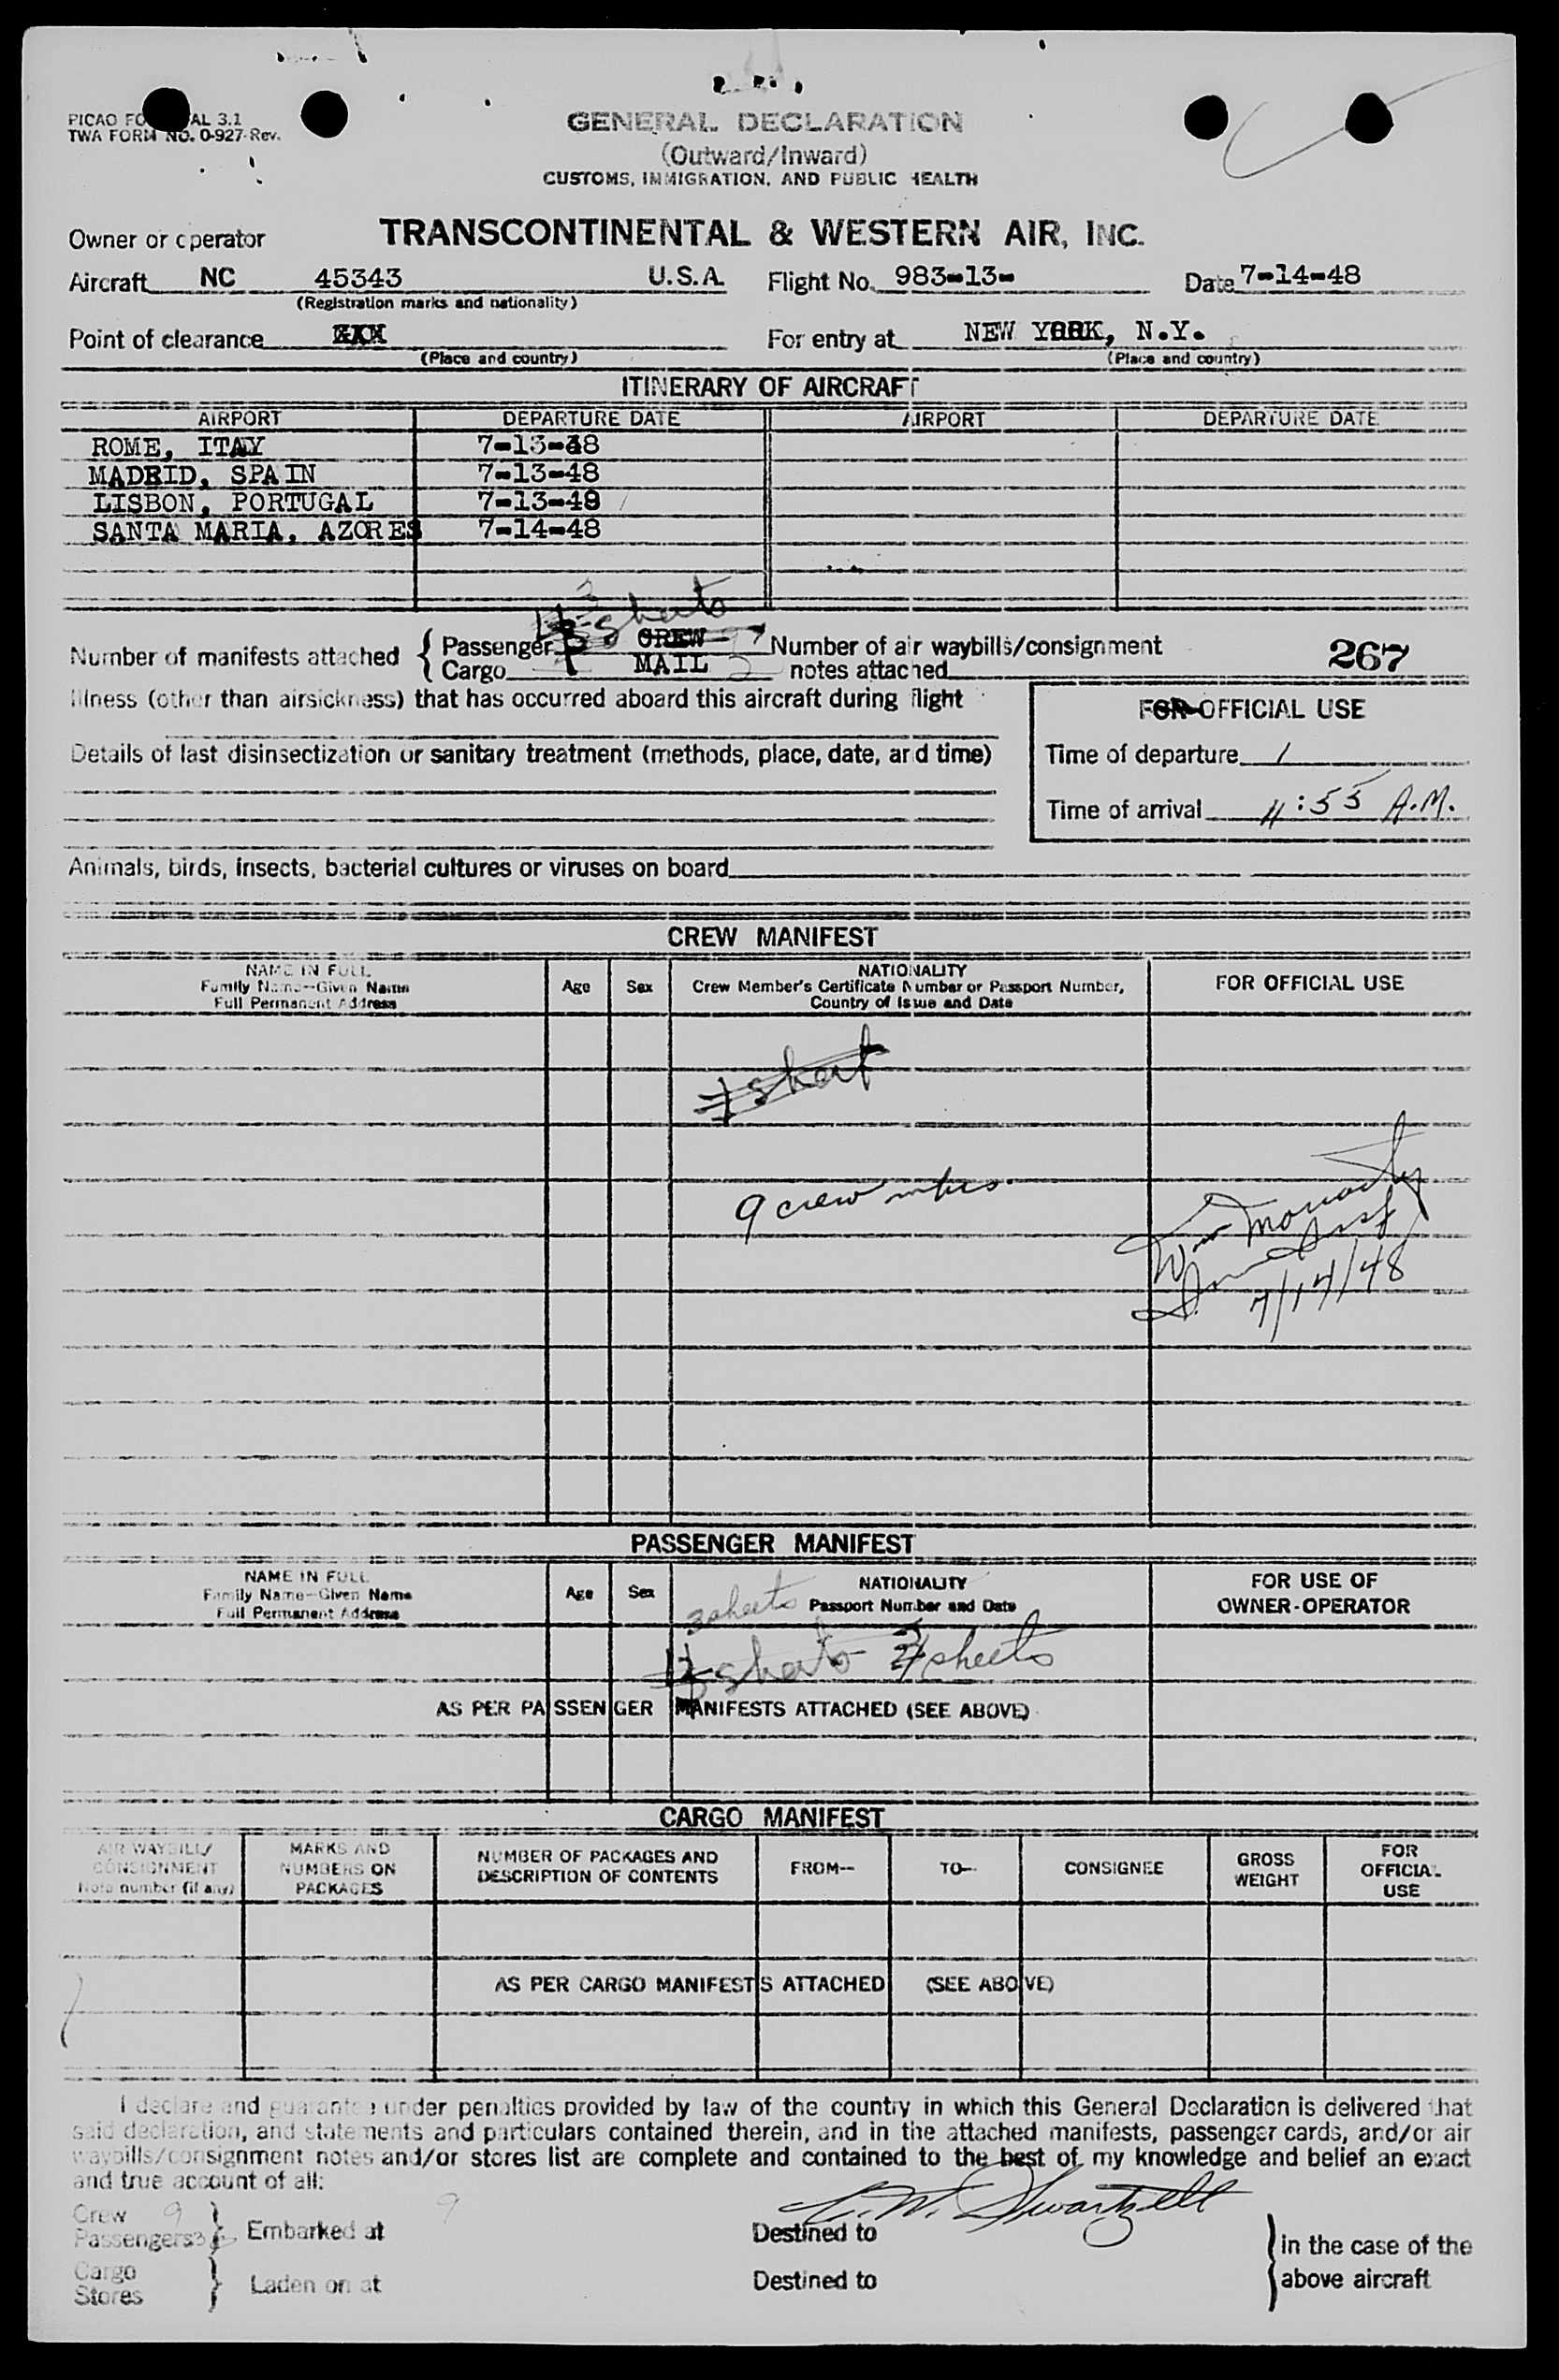 PICAO FO AL 3.1
TWA FORM NO. O-927-Rev.
GENERAL DECLARATION
(Outward/Inward)
CUSTOMS, IMMIGRATION, AND PUBLIC HEALTH
Owner or operator TRANSCONTINENTAL & WESTERN AIR, INC.
Aircraft NC 45343 U.S.A. Flight No. 983-13- Date 7-14-48
(Registration marks and nationality)
Point of clearance For entry at NEW YORK, N.Y.
(Place and country) (Place and country)
ITINERARY OF AIRCRAFT
AIRPORT DEPARTURE DATE AIRPORT DEPARTURE DATE
ROME, ITAY 7-13-48
MADRID, SPAIN 7-13-48
LISBON, PORTUGAL 7-13-48
SANTA MARIA, AZORES 7-14-48
3 sheets
Number of manifests attached { Passenger CREW Number of air waybills/consignment 267
Cargo MAIL notes attached
Illness (other than airsickness) that has occurred aboard this aircraft during flight
FOR OFFICIAL USE
Details of last disinsectization or sanitary treatment (methods, place, date, and time)
Time of departure
Time of arrival 11:55 A.M.
Animals, birds, insects, bacterial cultures or viruses on board
CREW MANIFEST
NAME IN FULL
Family Name—Given Name
Full Permanent Address
Age Sex
NATIONALITY
Crew Member's Certificate Number or Passport Number,
Country of Issue and Date
FOR OFFICIAL USE
1 sheet
9 crew mbrs.
Wm Moriarty
7/14/48
PASSENGER MANIFEST
NAME IN FULL
Family Name—Given Name
Full Permanent Address
Age Sex
NATIONALITY
Passport Number and Date
FOR USE OF
OWNER-OPERATOR
3 sheets
sheets sheets
AS PER PASSENGER MANIFESTS ATTACHED (SEE ABOVE)
CARGO MANIFEST
AIR WAYBILL/
CONSIGNMENT
Note number (if any)
MARKS AND
NUMBERS ON
PACKAGES
NUMBER OF PACKAGES AND
DESCRIPTION OF CONTENTS
FROM— TO— CONSIGNEE
GROSS
WEIGHT
FOR
OFFICIAL
USE
AS PER CARGO MANIFESTS ATTACHED (SEE ABOVE)
I declare and guarantee under penalties provided by law of the country in which this General Declaration is delivered that
said declaration, and statements and particulars contained therein, and in the attached manifests, passenger cards, and/or air
waybills/consignment notes and/or stores list are complete and contained to the best of my knowledge and belief an exact
and true account of all:
Crew 9
Passengers } Embarked at 9 Destined to
C.W. Swartzell
Cargo
Stores } Laden on at Destined to
} In the case of the
above aircraft